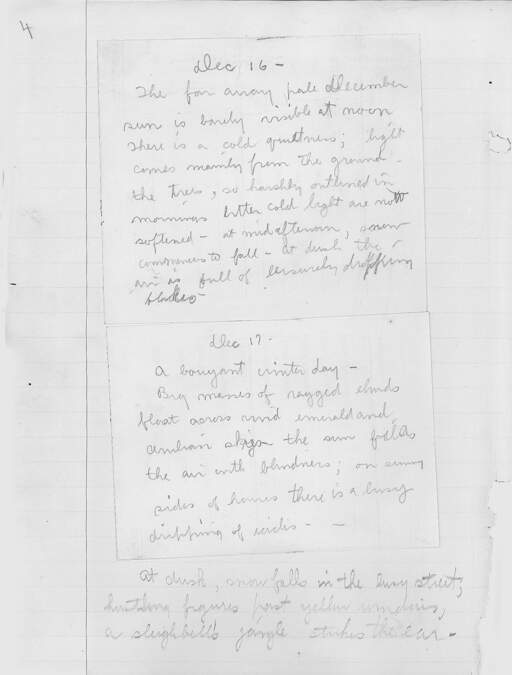 4
Dec 16 -
The far away pale December
sun is barely visible at noon
There is a cold quietness; light
comes mainly from the ground -
the trees, so harshly outlined in
mornings bitter cold light are now
softened - at mid afternoon, snow
commences to fall - at dusk the
air is full of leisurely dropping
flakes -
Dec 17 -
A bouyant winter day -
Big masses of ragged clouds
float across vivid emerald and
cerulean skies the sun fills
the air with blindness; on sunny
sides of homes there is a busy
dripping of icicles - -
At dusk, snow falls in the busy street;
hustling figures past yellow windows,
a sleighbell's jangle strikes the ear -